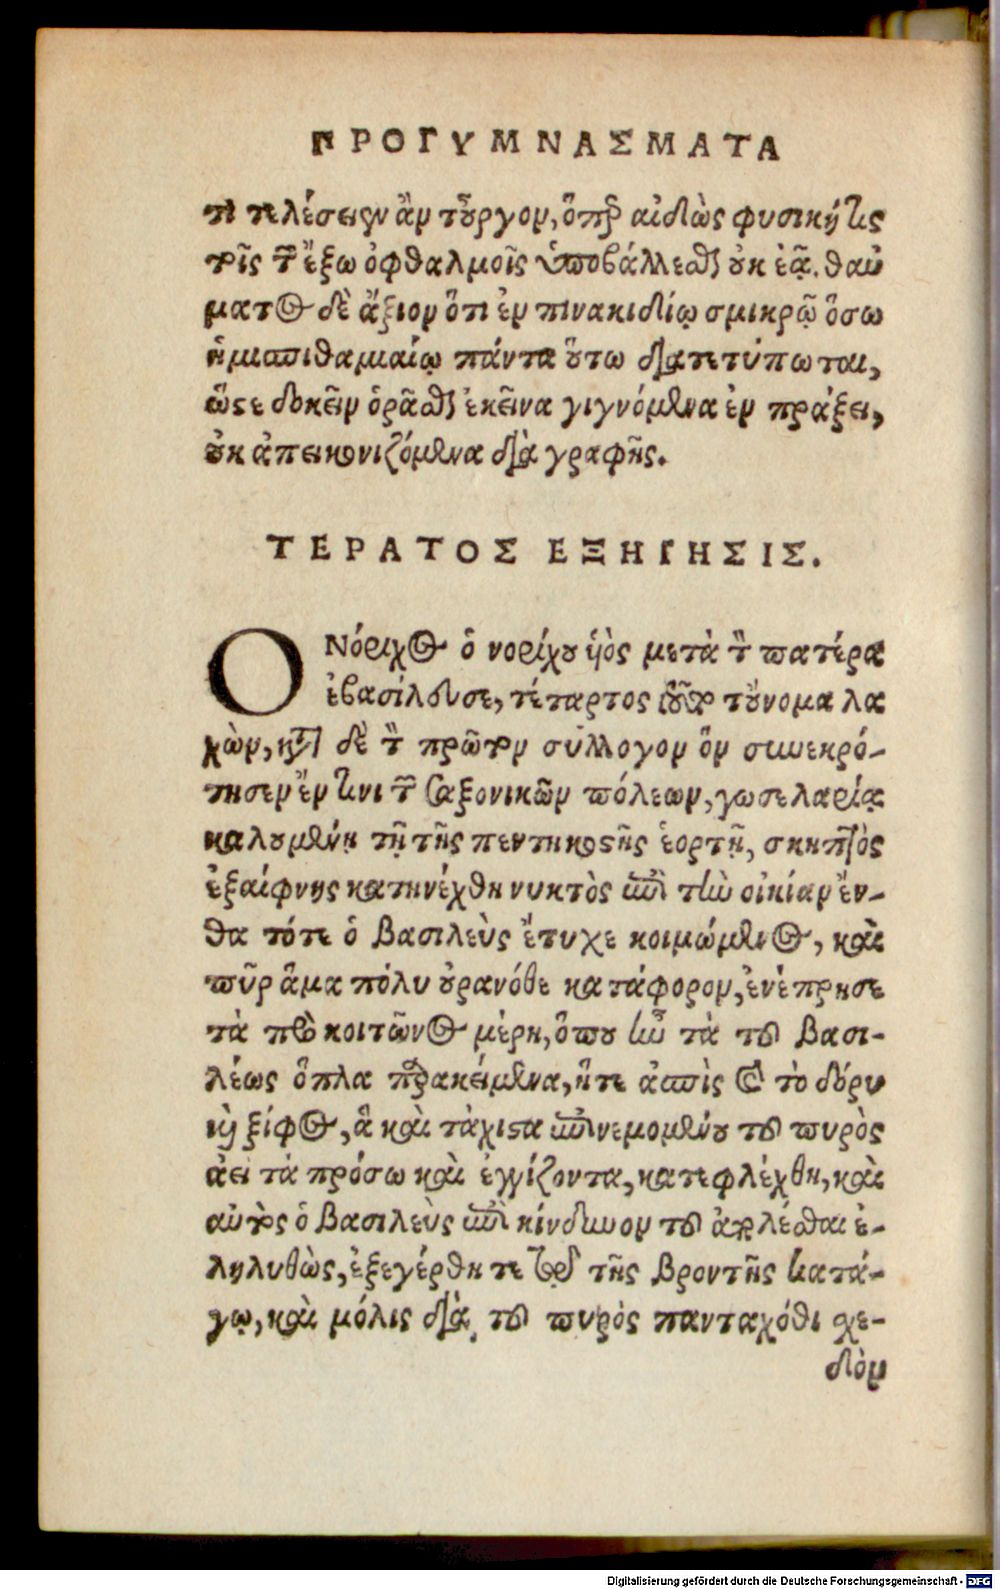 ΠΡΟΓΥΜΝΑΣΜΑΤΑ
τι τελέσειεν ἂν τοὖργον, ὅπερ αἰδὼς φυσική τις
τοῖς τῶν ἔξω ὀφθαλμοῖς ὑποβάλλεσθαι οὐκ ἐᾷ. θαύ
ματος δὲ ἄξιον ὅτι ἐν πινακιδίῳ σμικρῷ ὅσω
ἡμισπιθαμιαίῳ πάντα οὕτω διατετύπωται,
ὥστε δοκεῖν ὁρᾶσθαι ἐκεῖνα γιγνόμενα ἐν πράξει,
οὐκ ἀπεικονιζόμενα διὰ γραφῆς.
ΤΕΡΑΤΟΣ ΕΞΗΓΗΣΙΣ.
Ονόριχος ὁ νορίχου ὑὸς μετὰ τὸν πατέρα
ἐβασίλευσε, τέταρτος τοῦτο τοὔνομα λα
χὼν, κατὰ δὲ τὸν πρῶτον σύλλογον ὃν συνεκρό-
τησεν ἔν τινι τῶν Σαξονικῶν πόλεων, γωσελαρίᾳ
καλουμένῃ τῇ τῆς πεντηκοστῆς ἑορτῇ, σκηπτὸς
ἐξαίφνης κατηνέχθη νυκτὸς ἐπὶ τὴν οἰκίαν ἔν-
θα τότε ὁ βασιλεὺς ἔτυχε κοιμώμενος, καὶ
πῦρ ἅμα πόλυ οὐρανόθε κατάφορον, ἐνέπρησε
τὰ πρὸ κοιτῶνος μέρη, ὅπου ἦν τὰ τοῦ βασι-
λέως ὅπλα παρακείμενα, ἥτε ἀσπὶς καὶ τὸ δόρυ
καὶ ξίφος, ἃ καὶ τάχιστα ἐπινεμομένου τοῦ πυρὸς
ἀεὶ τὰ πρόσω καὶ ἐγγίζοντα, κατεφλέχθη, καὶ
αὐτὸς ὁ βασιλεὺς ἐπὶ κίνδυνον τοῦ ἀπολέσθαι ἐ-
ληλυθὼς, ἐξεγέρθη τε τῆς βροντῆς πατά-
γῳ, καὶ μόλις διὰ τοῦ πυρὸς πανταχόθι σχε-
δὸν
Digitalisierung gefördert durch die Deutsche Forschungsgemeinschaft - DFG